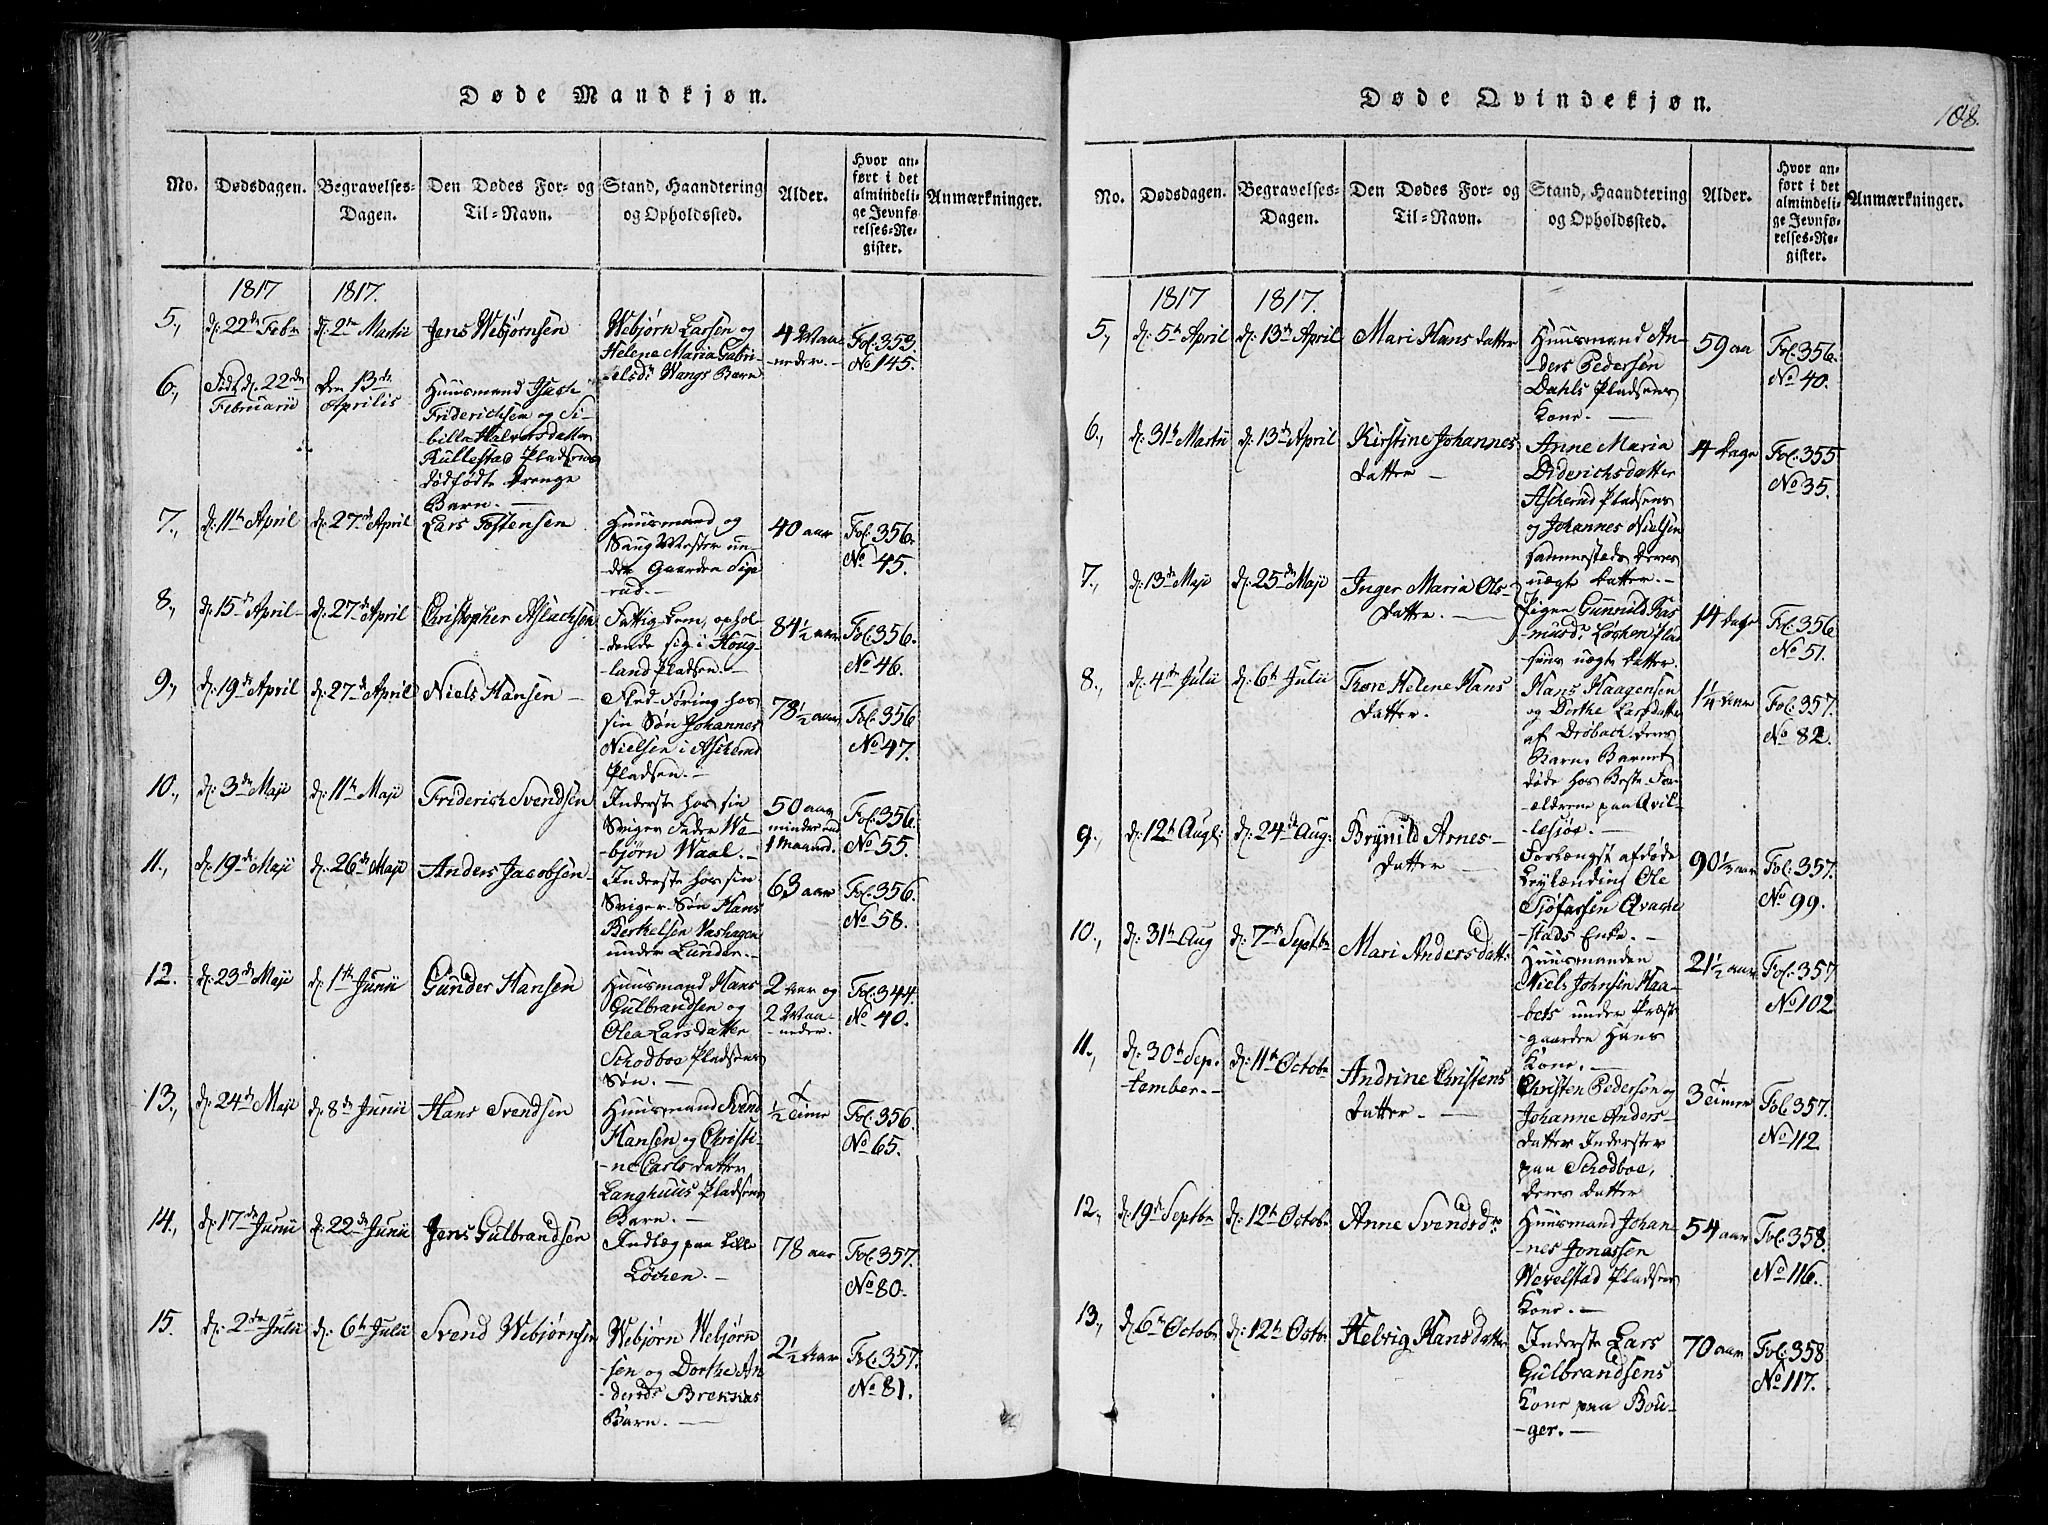 Døde Mandkjøn.
No.
Dødsdagen.
Begravelses-
Dagen.
Den Dødes For- og
Til-Navn.
Stand, Haandtering
og Opholdssted.
Alder.
Hvor an-
ført i det
almindeli-
ge Jevnfø-
relses-Re-
gister.
Anmærkninger.
1817
1817.
5.,
d: 22de Febr
d: 2de Martii
Jens Webjørnsen
Webjørn Larsen og
Helene Maria Gabri-
elsd: Wangs Barn
4 Maa-
neder.
Fol: 353.
No 145.
6.,
Født d: 22de
Februarii
Den 13de
Aprilis
Huusmand Isach
Friderichsen og Si-
bille Halvorsdatter
Kullestad Pladsens
dødfødte Drenge
Barn. —
7.,
d: 11te April
d: 27de April
Lars Tostensen
Huusmand og
Saug Mester un-
der Gaarden Sige-
rud. —
40 aar
Fol: 356.
No 45.
8.,
d: 15de April
d: 27de April
Christopher Aslachsen
Fattig-Lem, ophol-
dende sig i Houg-
land Pladsen. —
84½ aar
Fol: 356.
No 46.
9.,
d: 19de April
d: 27de April
Niels Hansen —
Fød-Føring hos
sin Søn Johannes
Nielsen i Ascherud
Pladsen. —
78½ aar
Fol: 356
No 47.
10.,
d: 3de Maji
d: 11te Maji
Friderich Svendsen
Inderste hos sin
Sviger Fader We-
bjørn Waal. —
50 aar
mindre end
1 Maaned.
Fol: 356.
No 55.
11.,
d: 19de Maji
d: 26de Maji
Anders Jacobsen
Inderste hos sin
Sviger-Søn Hans
Berthelsen Vashagen
under Lunder. —
63 aar
Fol: 356.
No 58.
12.
d: 23de Maji
d: 1ste Junii
Gunder Hansen
Huusmand Hans
Gulbrandsen og
Olea Larsdatter
Schodboe Pladsens
Søn. —
2 aar og
2 Maa-
neder.
Fol: 344.
No 40.
13.,
d: 24de Maji
d: 8de Junii
Hans Svendsen
Huusmand Svend
Hansen og Christi-
-ne Carlsdatter
Langhuus Pladsens
Barn. —
½ Time
Fol: 356.
No 65.
14.,
d: 17de Junii
d: 22de Junii
Jens Gulbrandsen
Indlæg paa Lille
Løchen. —
78 aar
Fol: 357.
No 80.
15.
d: 2den Julii
d: 6te Julii
Svend Webjørnsen
Webjørn Webjørn-
sen og Dorthe An-
dersd: Breknæs
Barn. —
2½ Aar
Fol: 357.
No 81.
Døde Qvindekjøn.
108.
No.
Dødsdagen.
Begravelses-
Dagen.
Den Dødes For- og
Til-Navn.
Stand, Haandtering
og Opholdssted.
Alder.
Hvor an-
ført i det
almindeli-
ge Jevnfø-
relses-Re-
gister.
Anmærkninger.
1817
1817.
5.,
d: 5te April
d: 13de April
Mari Hansdatter
Huusmand An-
ders Pedersen
Dahls Pladsens
Kone. —
59 aar
Fol: 356.
No 40.
6.,
d: 31te Martii
d: 13de April
Kirstine Johannes
Datter —
Anne Maria
Diderichsdatter
Ascherud Pladsens
og Johannes Nielsen
sammesteds deres
uægte Datter. —
4 Dage
Fol: 355
No 35.
7.,
d: 13de Maji
d: 25de Maji
Inger Maria Ols-
Datter. —
Pigen Gunnild Ras-
musd: Løchen Plad-
sens uægte Datter.
14 Dage
Fol: 356
No 51.
8.,
d: 4de Julii
d: 6te Julii
Thore Helene Hans
Datter.
Hans Haagensen
og Dorthe Larsdatter
af Drøbach deres
Barn. Barnet
døde hos Beste For-
ældrene paa Qvil-
lesjøe. —
1¼ Aar
Fol: 357.
No 82.
9.,
d: 12te Augl:
d: 24de Aug:
Brynild Arnes-
Datter —
Forlængst afdøde
Leylænding Ole
Tjøfossen Qvache-
stads Enke. —
90½ aar
Fol: 357.
No 99.
10.,
d: 31te Aug
d: 7de Septbr
Mari Andersdatt:
Huusmanden
Niels Johnsen Haa-
bets under Præst-
gaarden Hans
Kone. —
21½ aar
Fol: 357
No 102.
11.,
d: 30te Sep-
tember. —
d: 11te Octobr
Andrine Christens
Datter. —
Christen Pedersen og
Johanne Anders-
Datter Inderster
paa Schodboe,
deres Datter
3 Timer
Fol: 357.
No 112
12.,
d: 19de Septbr
d: 12te Octobr
Anne Svendsdr.
Huusmand Johan-
-nes Jonassen
Wevelstad Pladsens
Kone. —
54 aar
Fol: 358.
No 116.
13.,
d: 6te Octobr
d: 12te Octbr
Helvig Hansdatter
Inderste Lars
Gulbrandsens
Kone paa Bou-
-ger. —
70 aar
Fol: 358
No 117.